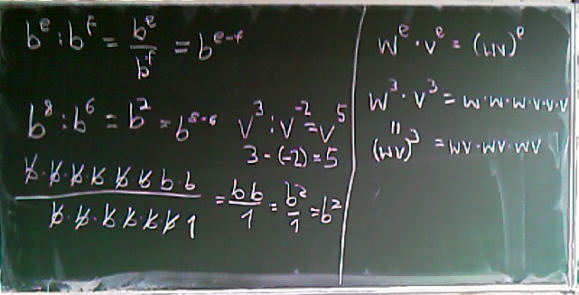 b^e : b^f = b^e/b^f = b^(e-f)
b^8 : b^6 = b^2 = b^(8-6)
v^3 : v^-2 = v^5
3 - (-2) = 5
b·b·b·b·b·b·b·b / b·b·b·b·b·b 1 = bb/1 = b^2/1 = b^2
w^e · v^e = (wv)^e
w^3 · v^3 = w·w·w·v·v·v
"
(wv)^3 = wv·wv·wv